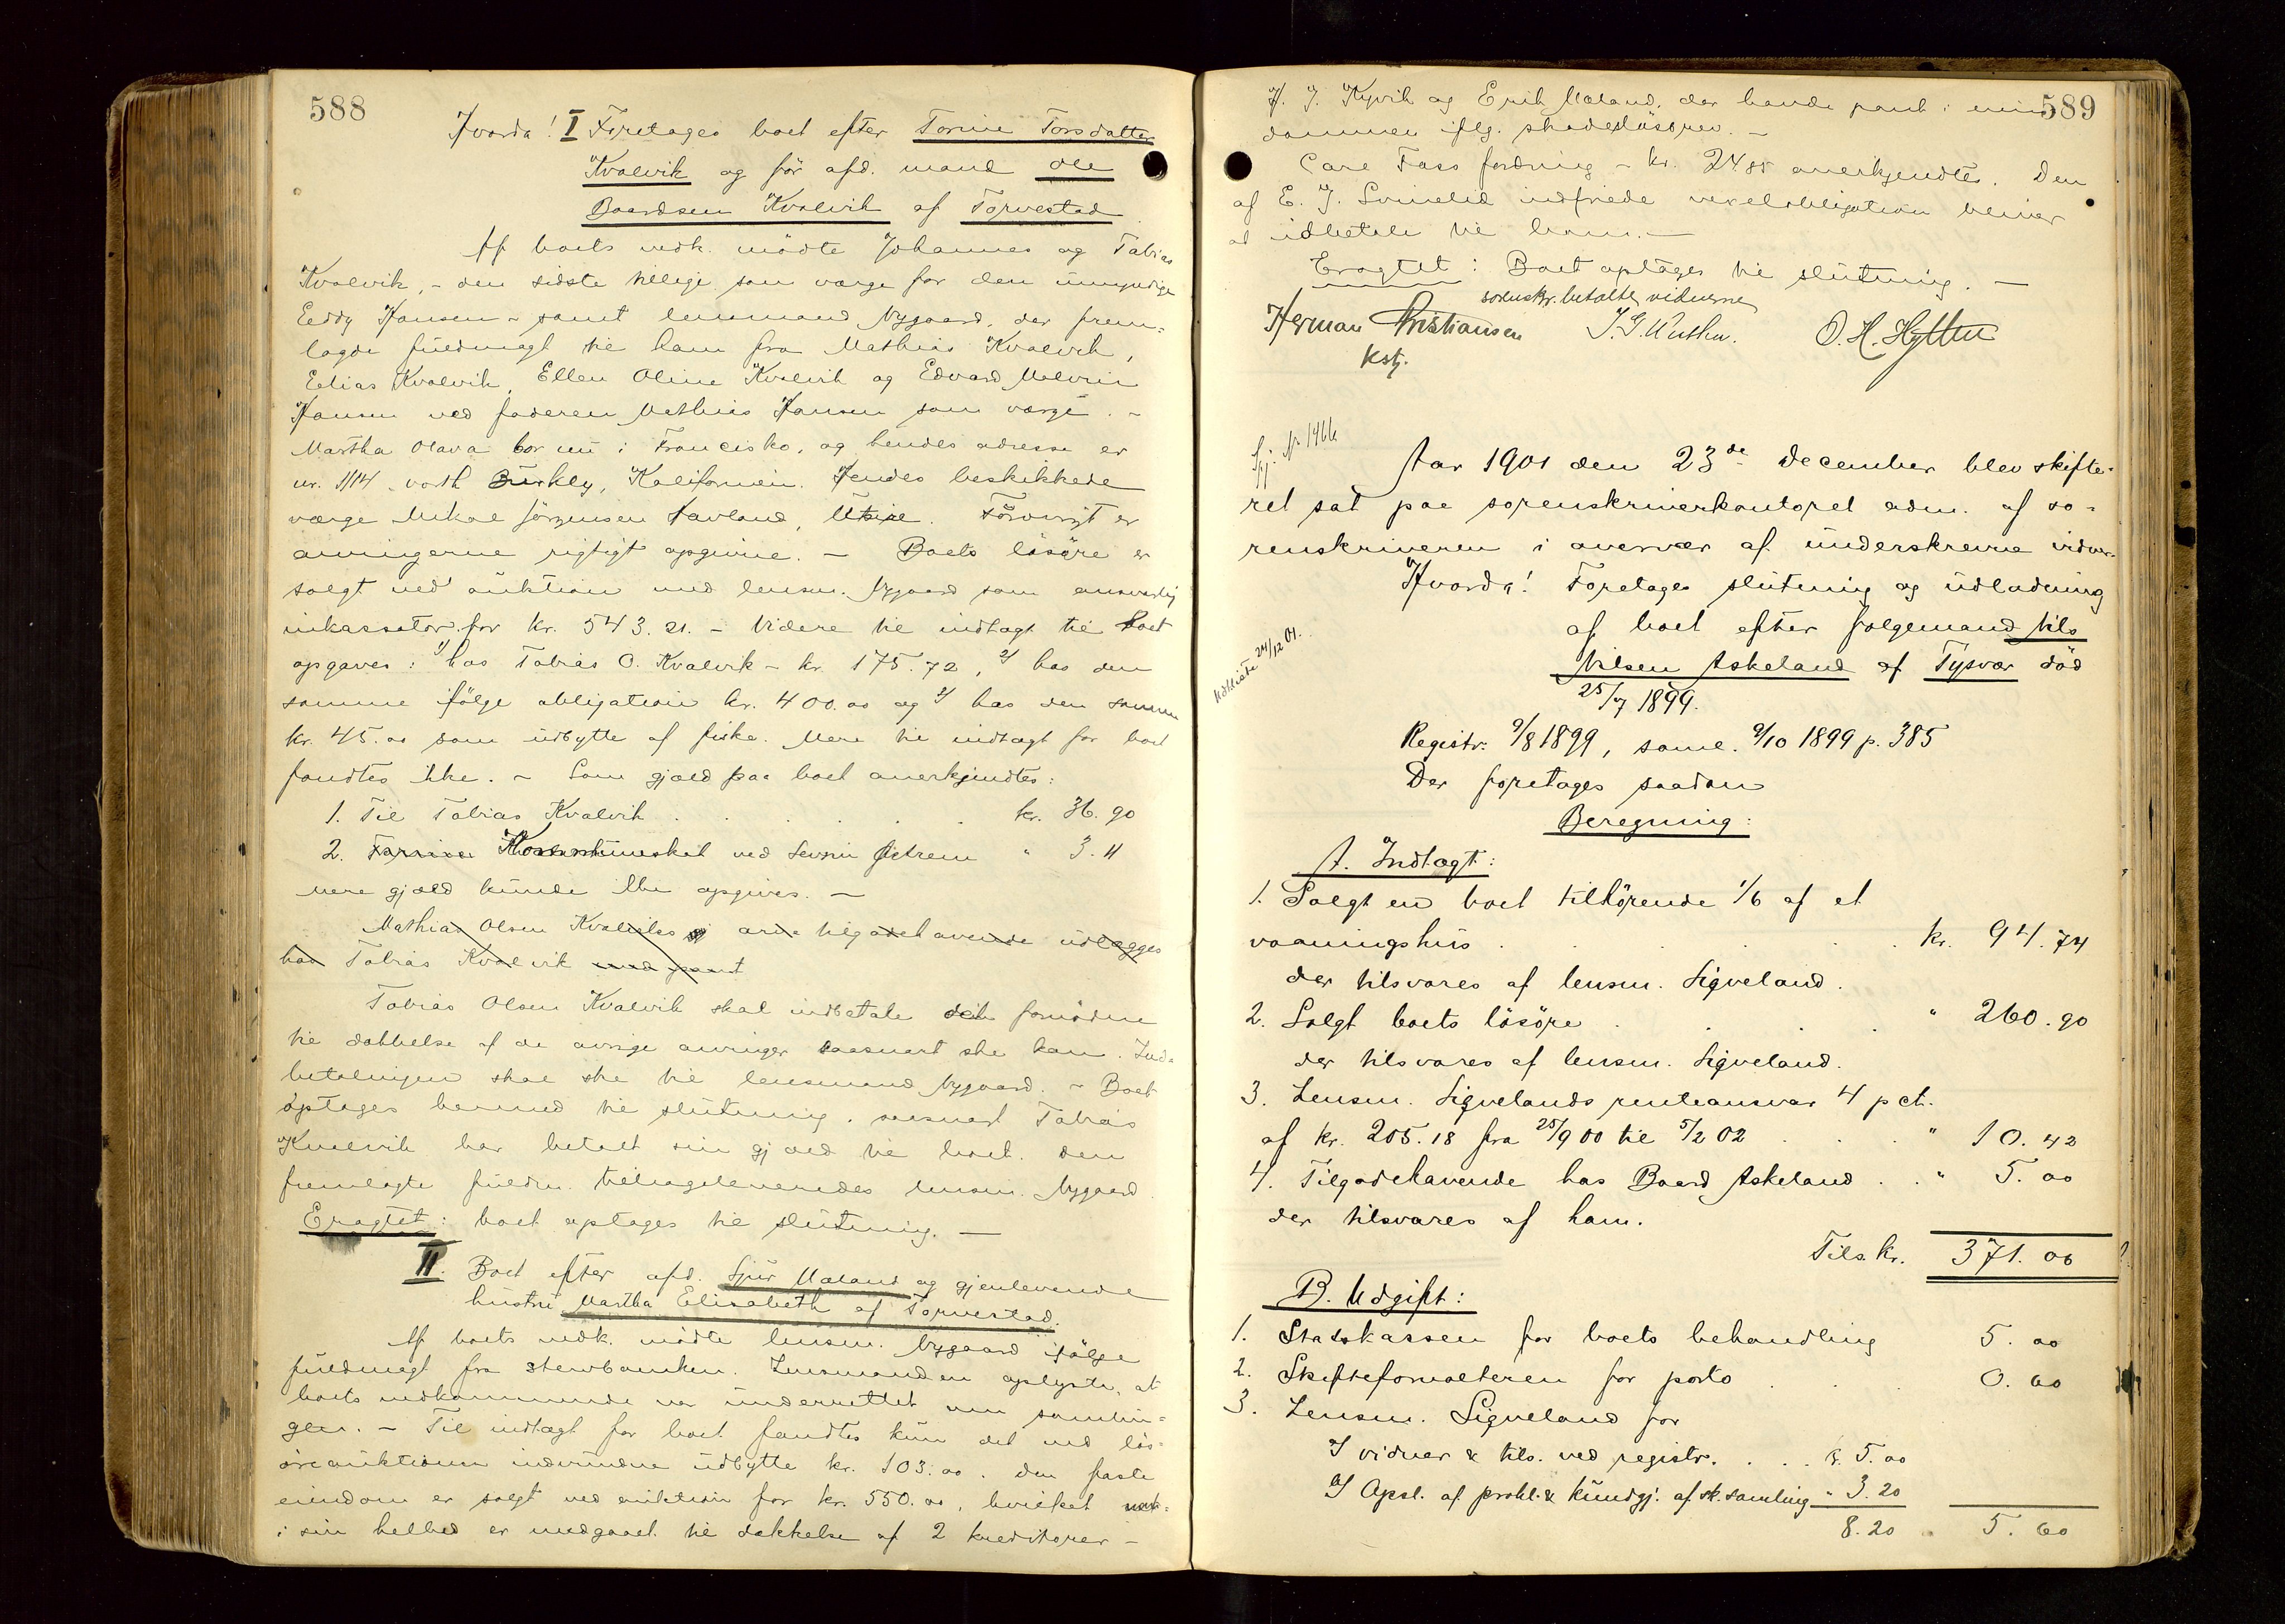 588
Hvorda! I Foretages boet efter Torine Torsdatter
Kvalevik og før afd. mand Ole
Baardsen Kvalevik af Torvestad
Af boets vedk. mødte Johannes og Tobias
Kvalevik, - den sidste tillige som verge for den umyndige
Eddy Hansen - samt lensmand Nygaard, der frem-
lagde fuldmagt til ham fra Mathias Kvalevik,
Elias Kvalevik, Ellen Oline Kvalevik og Edvard Melvin
Hansen ved faderen Mathias Hansen som verge. -
Martha Olava bor nu i Francisko, og hendes adresse er
nr. 1114 vorth Burkley, Kalifornien. Hendes beskikkede
verge Mikal Jørgensen Havland, Utsire. Forøvrigt er
arvingerne rigtigt opgivne. - Boets løsøre er
solgt ved auktion med lensm. Nygaard som ansvarlig
inkassator for kr. 543.21. - Videre til indtægt til boet
opgaves: 1) hos Tobias O. Kvalevik - kr. 175.72, 2) hos den
samme ifølge obligation kr. 400.00 og 3) hos den samme
kr. 45.00 som udbytte af fiske. Mere til indtægt for boet
fandtes ikke. - Som gjæld paa boet anerkjendtes:
1. Til Tobias Kvalevik . . . . . kr. 36.90
2. Kommuneskat ved Sevrin Østrem " 3.11
mere gjæld kunde ikke opgives. -
Mathias Olsen Kvaleviks arve tilgodehavende udlægges
hos Tobias Kvalevik med pant
Tobias Olsen Kvalevik skal indbetale det fornødne
til dækkelse af de øvrige arvinger saasnart ske kan. Ind-
betalingen skal ske til lensmand Nygaard. - Boet
optages hermed til slutning, saasnart Tobias
Kvalevik har betalt sin gjæld til boet. Den
fremlagte fuldm. tilbageleveredes lensm. Nygaard.
Eragtet: boet optages til slutning. -
II. Boet efter afd. Sjur Mæland og gjenlevende
hustru Martha Elisabeth af Torvestad.
Af boets vedk. mødte lensm. Nygaard ifølge
fuldmagt fra sterboenken. Lensmanden oplyste, at
boets vedkommende var underrettet om samlin-
gen. - Til indtægt for boet fandtes kun det ved løs-
øreauktionen indvundne udbytte kr. 103.00. Den faste
eiendom er solgt ved auktion for kr. 550.00, hvilket
i sin helhed er medgaaet til dækkelse af 2 kreditorer -
589
H. J. Kyvik og Erik Mæland, der havde pant i eien-
dommen iflg. skadesløsbrev. -
Carl Fass fordring - kr. 24.85 anerkjendtes. Den
af E. J. Svinelid indfriede vexelobligation bliver
at udbetale til ham. -
Eragtet: Boet optages til slutning. -
sorenskr. betalte vidnerne
Herman Christiansen J. G. Wuthn. O. H. Hytten
kst.
Sj. Nr 1466
Aar 1901 den 23de december blev skifte-
ret sat paa sorenskriverkontoret adm. af so-
renskriveren i overvær af underskrevne vidner.
Hvorda! Foretages slutning og udlodning
af boet efter følgemand Nils
Nilsen Askeland af Tysvær død
25/7 1899.
Udkliste 24/12 01.
Registr: 9/8 1899, saml. 9/10 1899 p. 385
Der foretages saadan
Beregning:
A. Indtægt:
1. Solgt en boet tilhørende 1/6 af et
vaaningshus . . . . . kr. 94.74
der tilsvares af lensm. Sigveland.
2. Solgt boets løsøre . . . . " 260.90
der tilsvares af lensm. Sigveland.
3. Lensm. Sigvelands renteansvar 4 pct.
af kr. 205.18 fra 25/9 00 til 5/2 02 . . . " 10.42
4. Tilgodehavende hos Baard Askeland . . " 5.00
der tilsvares af ham.
Tils. kr. 371.06
B. Udgift:
1. Statskassen for boets behandling 5.00
2. Skifteforvalteren for porto . . . 0.60
3. Lensm. Sigveland for
1) vidner & tils. ved registr. . . . k. 5.00
2) Opsl. af prokl. & kundgj. af sk.samling " 3.20
8.20 " 5.60